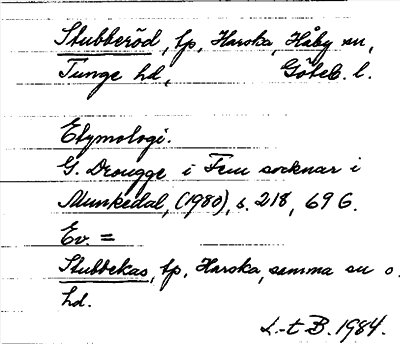 Stubberöd, tp, Harska, Håby sn,
Tunge hd, Göteb. l.
Etymologi.
G. Drougge i Fem socknar i
Munkedal, (1980), s. 218, 696.
Ev. =
Stubbekas, tp, Harska, samma sn o.
hd.
L-t B. 1984.